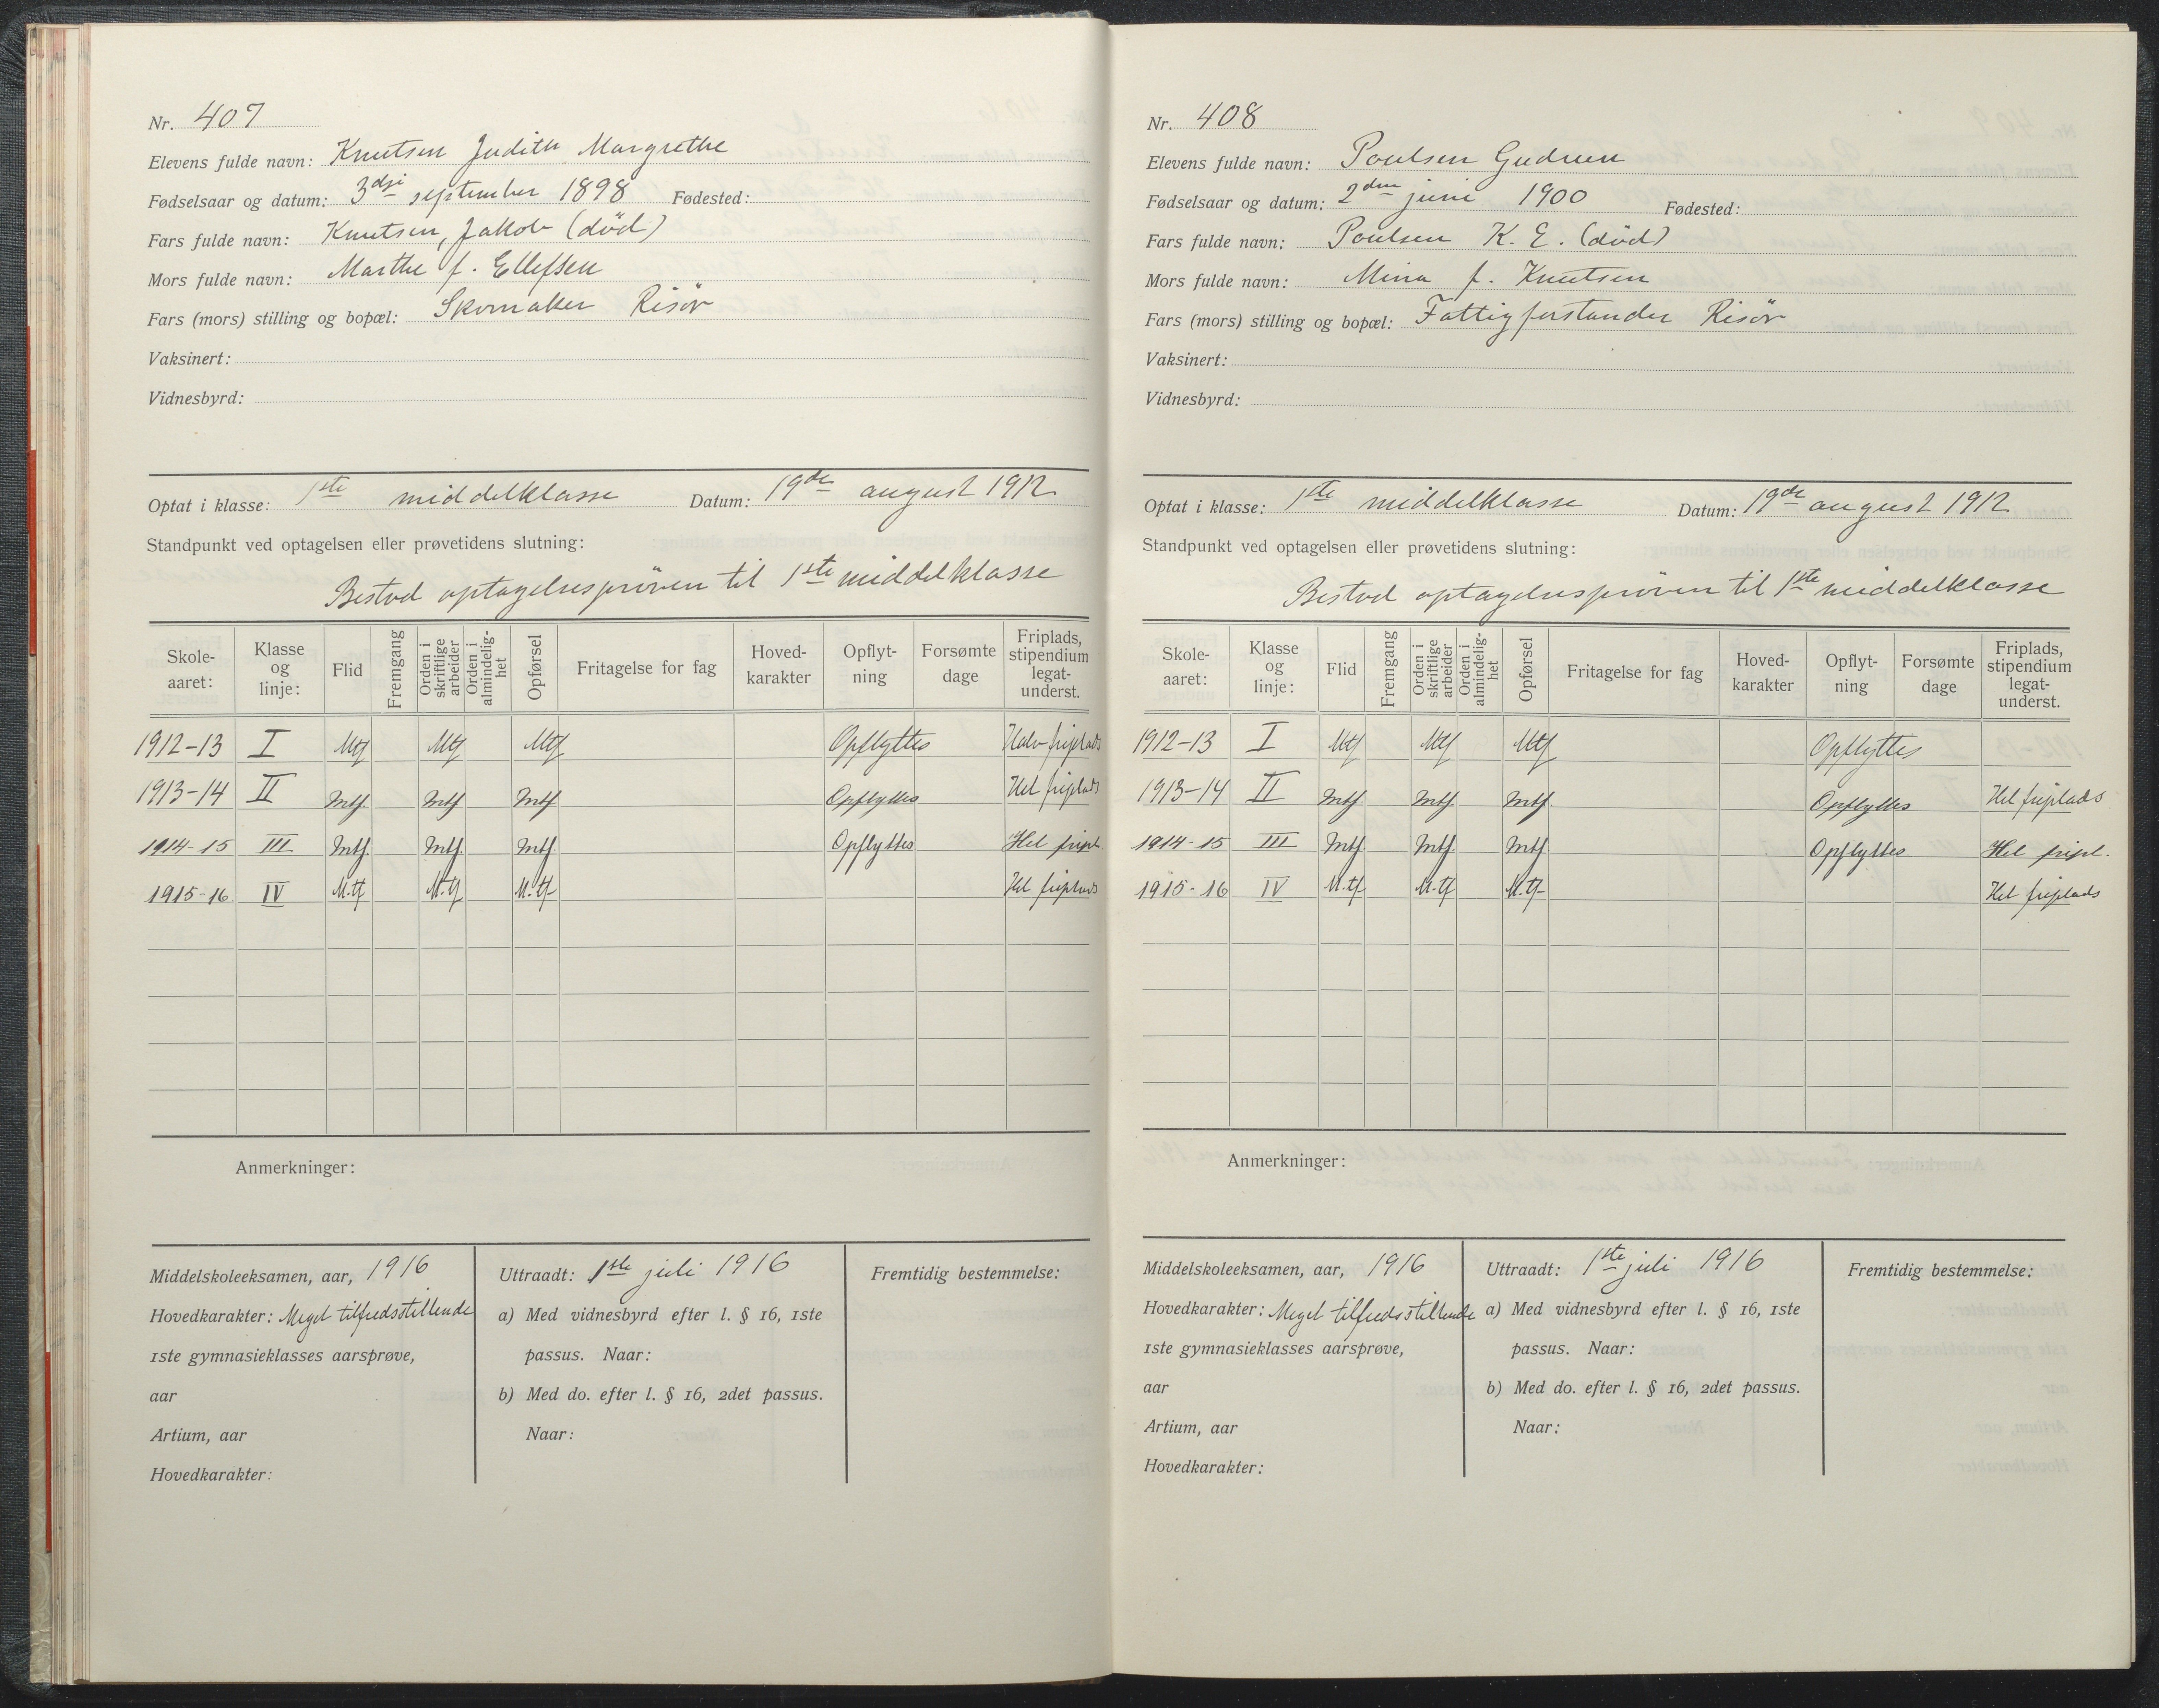 Nr. 407
Elevens fulde navn: Knutsen Judith Margrethe
Fødselsaar og datum: 3dje september 1898 Fødested:
Fars fulde navn: Knutsen, Jakob (død)
Mors fulde navn: Marthe f. Ellefsen
Fars (mors) stilling og bopæl: Skomaker Risør
Vaksinert:
Vidnesbyrd:
Optat i klasse: 1ste middelklasse Datum: 19de august 1912
Standpunkt ved optagelsen eller prøvetidens slutning:
Bestod optagelsesprøven til 1ste middelklasse
Skole-aaret: Klasse og linje: Flid Fremgang Orden i skriftlige arbeider Orden i almindelig-het Opførsel Fritagelse for fag Hoved-karakter Opflyt-ning Forsømte dage Friplads, stipendium legat-underst.
1912-13 I Mtf Mtf Mtf Opflyttes Halv friplads
1913-14 II Mtf Mtf Mtf Opflyttes Hel friplads
1914-15 III Mtf. Mtf. Mtf. Opflyttes Hel fripl.
1915-16 IV M.tf M.tf M.tf Hel friplads
Anmerkninger:
Middelskoleeksamen, aar, 1916
Hovedkarakter: Meget tilfredsstillende
1ste gymnasieklasses aarsprøve,
aar
Artium, aar
Hovedkarakter:
Uttraadt: 1ste juli 1916
a) Med vidnesbyrd efter l. § 16, 1ste
passus. Naar:
b) Med do. efter l. § 16, 2det passus.
Naar:
Fremtidig bestemmelse:
Nr. 408
Elevens fulde navn: Poulsen Gudrun
Fødselsaar og datum: 2den juni 1900 Fødested:
Fars fulde navn: Poulsen K. E. (død)
Mors fulde navn: Mina f. Knutsen
Fars (mors) stilling og bopæl: Fattigforstander Risør
Vaksinert:
Vidnesbyrd:
Optat i klasse: 1ste middelklasse Datum: 19de august 1912
Standpunkt ved optagelsen eller prøvetidens slutning:
Bestod optagelsesprøven til 1ste middelklasse
Skole-aaret: Klasse og linje: Flid Fremgang Orden i skriftlige arbeider Orden i almindelig-het Opførsel Fritagelse for fag Hoved-karakter Opflyt-ning Forsømte dage Friplads, stipendium legat-underst.
1912-13 I Mtf Mtf Mtf Opflyttes
1913-14 II Mtf. Mtf. Mtf. Opflyttes Hel friplads
1914-15 III Mtf. Mtf. Mtf. Opflyttes Hel fripl.
1915-16 IV M.tf M.tf M.tf Hel friplads
Anmerkninger:
Middelskoleeksamen, aar, 1916
Hovedkarakter: Meget tilfredsstillende
1ste gymnasieklasses aarsprøve,
aar
Artium, aar
Hovedkarakter:
Uttraadt: 1ste juli 1916
a) Med vidnesbyrd efter l. § 16, 1ste
passus. Naar:
b) Med do. efter l. § 16, 2det passus.
Naar:
Fremtidig bestemmelse: